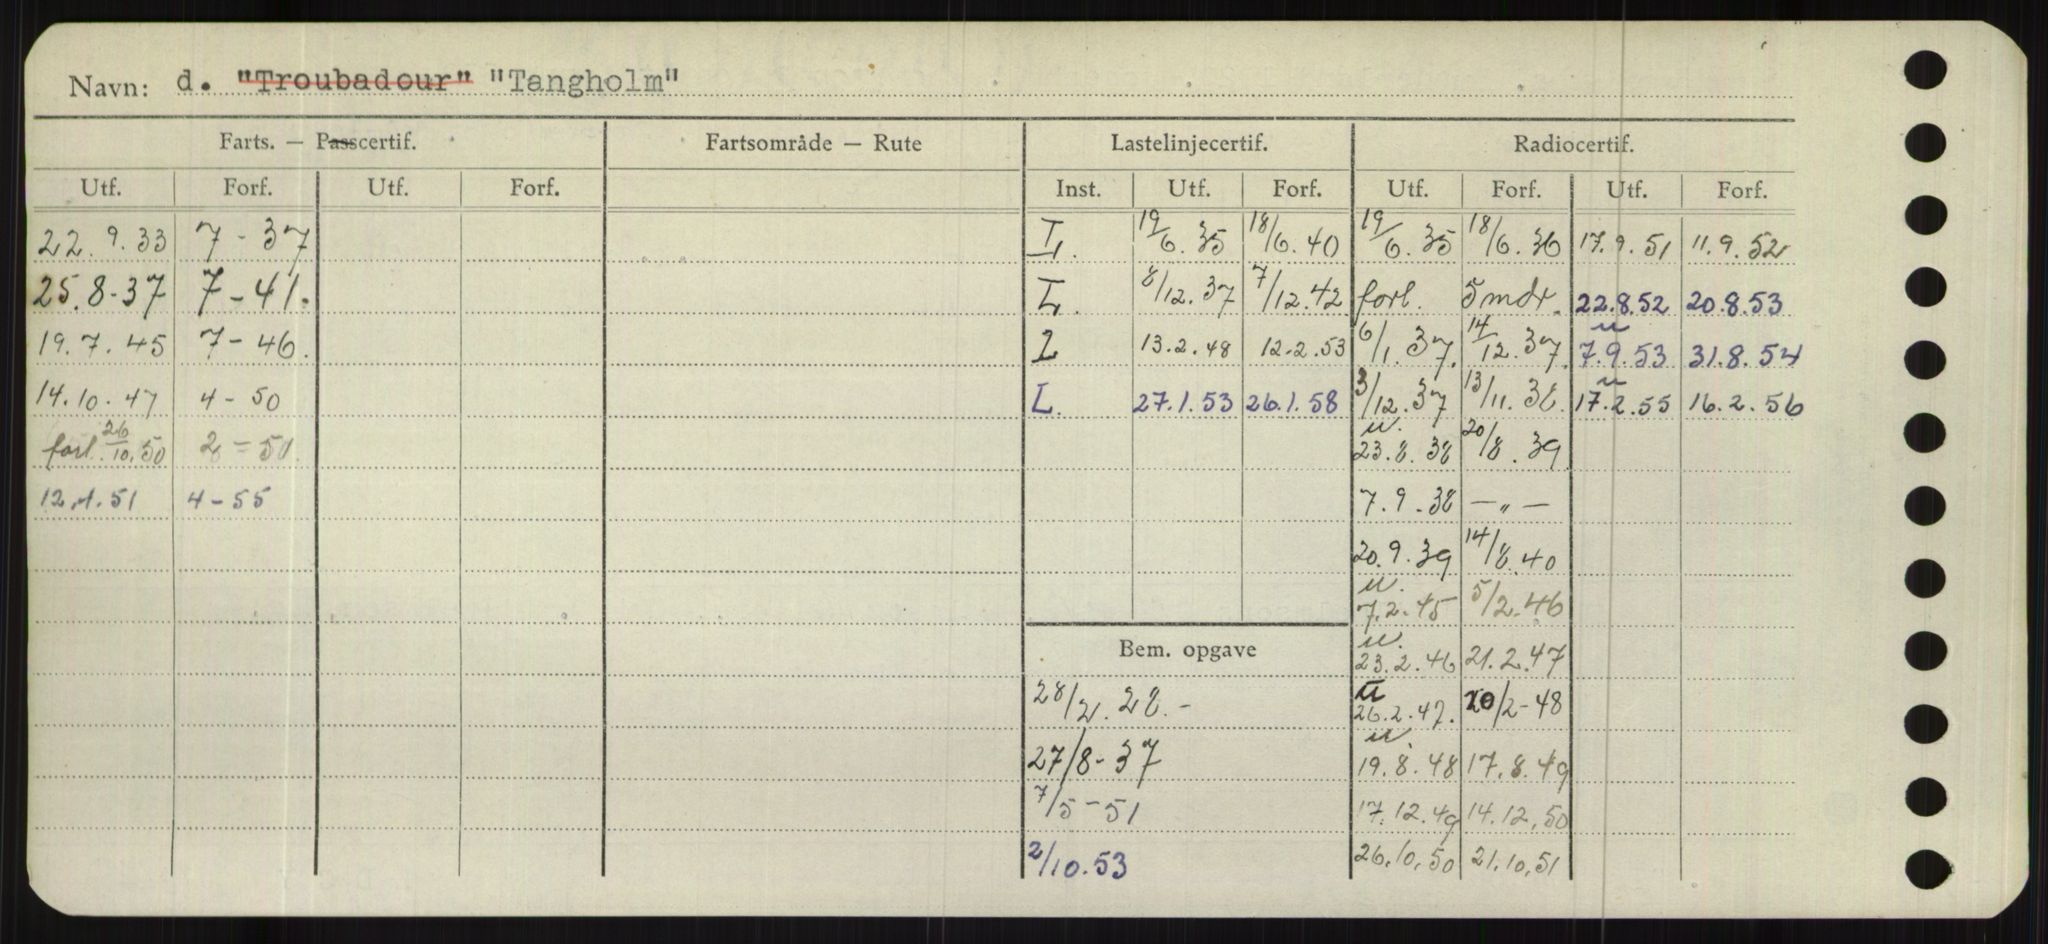 Navn: d. "Troubadour" "Tangholm"
Farts. — Passcertif. Fartsområde — Rute Lastelinjecertif. Radiocertif.
Utf. Forf. Utf. Forf. Inst. Utf. Forf. Utf. Forf. Utf. Forf.
22.9.33 7-37 L. 19/6.35 18/6.40 19/6.35 18/6.36 17.9.51 11.9.52
25.8-37 7-41. L. 8/12.37 7/12.42 forl. 5 mdr. 22.8.52 20.8.53
19.7.45 7-46. L 13.2.48 12.2.53 6/1.37. 14/12.37. u 7.9.53 31.8.54
14.10.47 4-50 L. 27.1.53 26.1.58 3/12.37 13/11.38. u 17.2.55 16.2.56
forl. 26/10.50 2=50 u. 23.8.38 20/8.39
12.1.51 4-55 7.9.38 —„—
20.9.39 14/8.40
u. 7.2.45 5/2.46
Bem. opgave u. 23.2.46 21.2.47
28/2.28.- u 26.2.47. 20/2-48
27/8-37 u 19.8.48 17.8.49
7/5-51 17.12.49 14.12.50
2/10.53 26.10.50 21.10.51